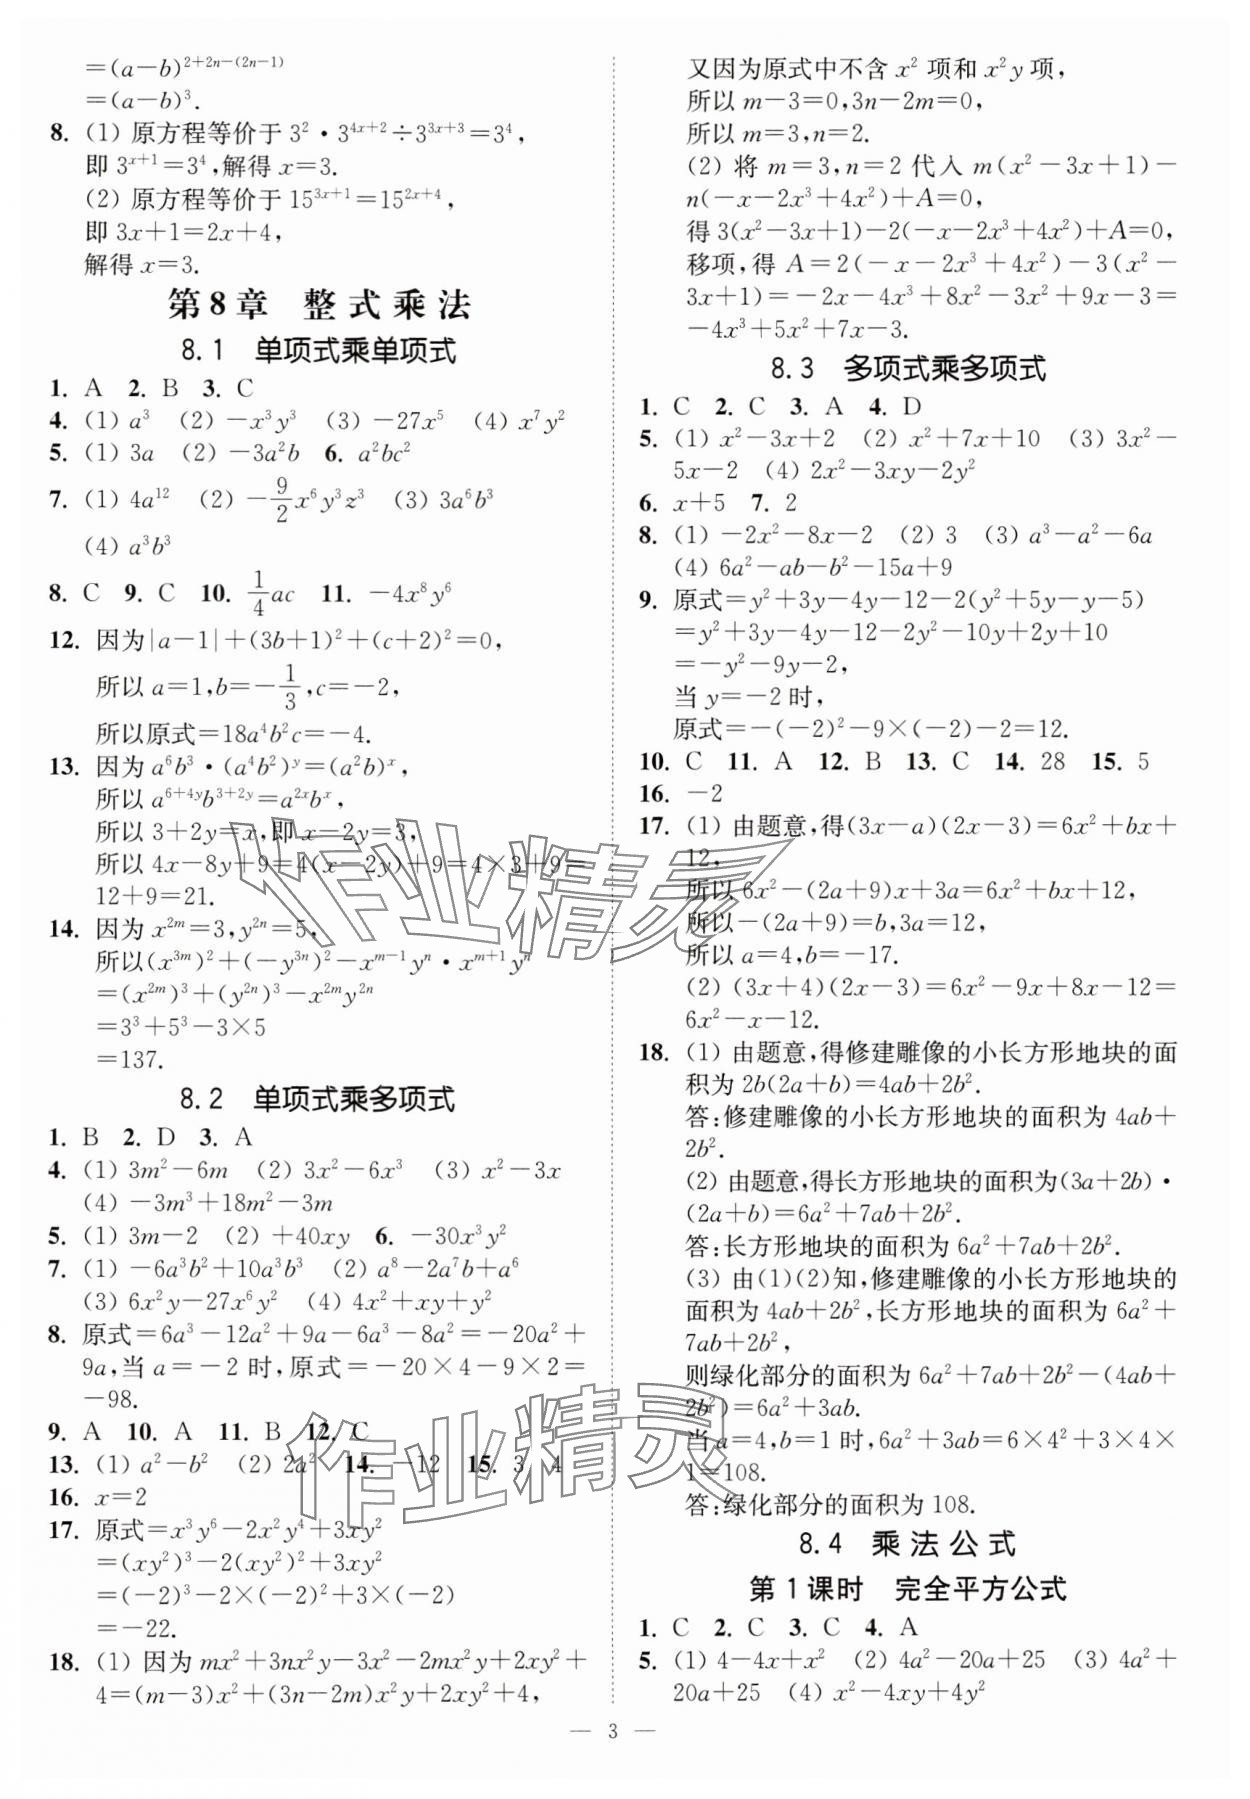 =(a−b)^{2+2n−(2n−1)}
=(a−b)³.
8. (1) 原方程等价于 3²·3^{4x+2}÷3^{3x+3}=3⁴,
即 3^{x+1}=3⁴,解得 x=3.
(2) 原方程等价于 15^{3x+1}=15^{2x+4},
即 3x+1=2x+4,
解得 x=3.
第 8 章 整式乘法
8.1 单项式乘单项式
1. A 2. B 3. C
4. (1) a³ (2) −x³y³ (3) −27x⁵ (4) x⁷y²
5. (1) 3a (2) −3a²b 6. a²bc²
7. (1) 4a¹² (2) −9/2 x⁶y³z³ (3) 3a⁶b³
(4) a³b³
8. C 9. C 10. 1/4 ac 11. −4x⁸y⁶
12. 因为|a−1|+(3b+1)²+(c+2)²=0,
所以 a=1,b=−1/3,c=−2,
所以原式=18a⁴b²c=−4.
13. 因为 a⁶b³·(a⁴b²)^y=(a²b)^x,
所以 a^{6+4y}b^{3+2y}=a^{2x}b^x,
所以 3+2y=x,即 x−2y=3,
所以 4x−8y+9=4(x−2y)+9=4×3+9=
12+9=21.
14. 因为 x^{2m}=3,y^{2n}=5,
所以(x^{3m})²+(−y^{3n})²−x^{m−1}y^n·x^{m+1}y^n
=(x^{2m})³+(y^{2n})³−x^{2m}y^{2n}
=3³+5³−3×5
=137.
8.2 单项式乘多项式
1. B 2. D 3. A
4. (1) 3m²−6m (2) 3x²−6x³ (3) x²−3x
(4) −3m³+18m²−3m
5. (1) 3m−2 (2) +40xy 6. −30x³y²
7. (1) −6a³b²+10a³b³ (2) a⁸−2a⁷b+a⁶
(3) 6x²y−27x⁶y² (4) 4x²+xy+y²
8. 原式=6a³−12a²+9a−6a³−8a²=−20a²+
9a,当 a=−2 时,原式=−20×4−9×2=
−98.
9. A 10. A 11. B 12. C
13. (1) a²−b² (2) 2a² 14. −12 15. 3 4
16. x=2
17. 原式=x³y⁶−2x²y⁴+3xy²
=(xy²)³−2(xy²)²+3xy²
=(−2)³−2×(−2)²+3×(−2)
=−22.
18. (1) 因为 mx²+3nx²y−3x²−2mx²y+2xy²+
4=(m−3)x²+(3n−2m)x²y+2xy²+4,
又因为原式中不含 x² 项和 x²y 项,
所以 m−3=0,3n−2m=0,
所以 m=3,n=2.
(2) 将 m=3,n=2 代入 m(x²−3x+1)−
n(−x−2x³+4x²)+A=0,
得 3(x²−3x+1)−2(−x−2x³+4x²)+A=0,
移项,得 A=2(−x−2x³+4x²)−3(x²−
3x+1)=−2x−4x³+8x²−3x²+9x−3=
−4x³+5x²+7x−3.
8.3 多项式乘多项式
1. C 2. C 3. A 4. D
5. (1) x²−3x+2 (2) x²+7x+10 (3) 3x²−
5x−2 (4) 2x²−3xy−2y²
6. x+5 7. 2
8. (1) −2x²−8x−2 (2) 3 (3) a³−a²−6a
(4) 6a²−ab−b²−15a+9
9. 原式=y²+3y−4y−12−2(y²+5y−y−5)
=y²+3y−4y−12−2y²−10y+2y+10
=−y²−9y−2,
当 y=−2 时,
原式=−(−2)²−9×(−2)−2=12.
10. C 11. A 12. B 13. C 14. 28 15. 5
16. −2
17. (1) 由题意,得(3x−a)(2x−3)=6x²+bx+
12,
所以 6x²−(2a+9)x+3a=6x²+bx+12,
所以−(2a+9)=b,3a=12,
所以 a=4,b=−17.
(2) (3x+4)(2x−3)=6x²−9x+8x−12=
6x²−x−12.
18. (1) 由题意,得修建雕像的小长方形地块的面
积为 2b(2a+b)=4ab+2b².
答:修建雕像的小长方形地块的面积为 4ab+
2b².
(2) 由题意,得长方形地块的面积为(3a+2b)·
(2a+b)=6a²+7ab+2b².
答:长方形地块的面积为 6a²+7ab+2b².
(3) 由(1)(2)知,修建雕像的小长方形地块的
面积为 4ab+2b²,长方形地块的面积为 6a²+
7ab+2b²,
则绿化部分的面积为 6a²+7ab+2b²−(4ab+
2b²)=6a²+3ab.
当 a=4,b=1 时,6a²+3ab=6×4²+3×4×
1=108.
答:绿化部分的面积为 108.
8.4 乘法公式
第 1 课时 完全平方公式
1. C 2. C 3. C 4. A
5. (1) 4−4x+x² (2) 4a²−20a+25 (3) 4a²+
20a+25 (4) x²−4xy+4y²
— 3 —
作业精灵
作业精灵